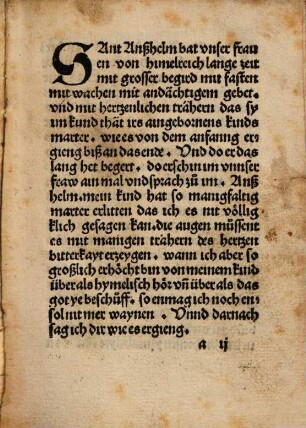 SAnt Anßhelm bat vnser frau
en von himelreich lange zeit
mit grosser begird mit fasten
mit wachen mit andächtigem gebet.
vnd mit hertzenlichen trähern das sy
im kund thät irs aingebornens kinds
marter. wie es von dem anfanng er⸗
gieng biß an das ende. Vnd do er das
lang het begert. do erschin im vnnser
fraw ain mal vnd sprach zů im. Anß
helm. mein kind hat so manigfaltig
marter erlitten das ich es nit völlig⸗
klich gesagen kan. die augen müssent
es mit manigen trähern des hertzen
bitterkayt erzeygen. wann ich aber so
großlich erhöcht bin von meinem kind
über als hymelisch hör vñ über als das
got ye beschůff. so enmag ich noch en⸗
sol nit mer waynen. Vnnd darnach
sag ich dir wie es ergieng.
a ij